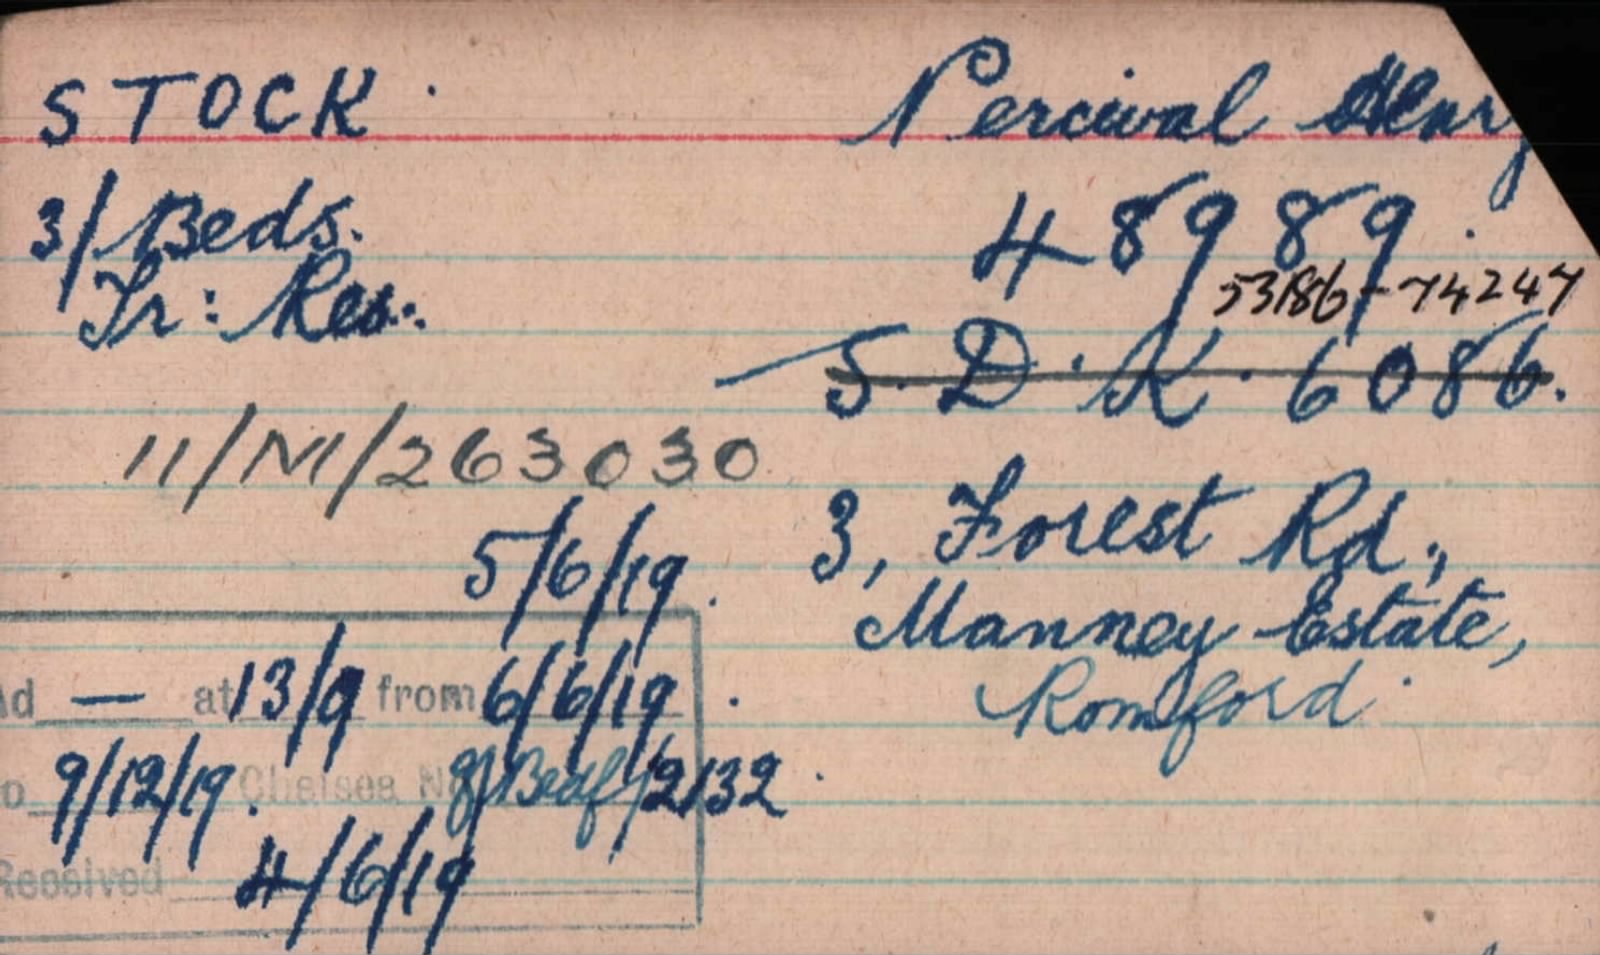 STOCK. Percival Henry
3/Beds. 48989.
Tr: Res. 53186-74247
S.D.K. 6086.
11/M/263030
5/6/19. 3, Forest Rd.,
Manney Estate,
at 13/9 from 6/6/19. Romford.
9/12/19. Chelsea No 8/Bedf/2132.
Received 4/6/19